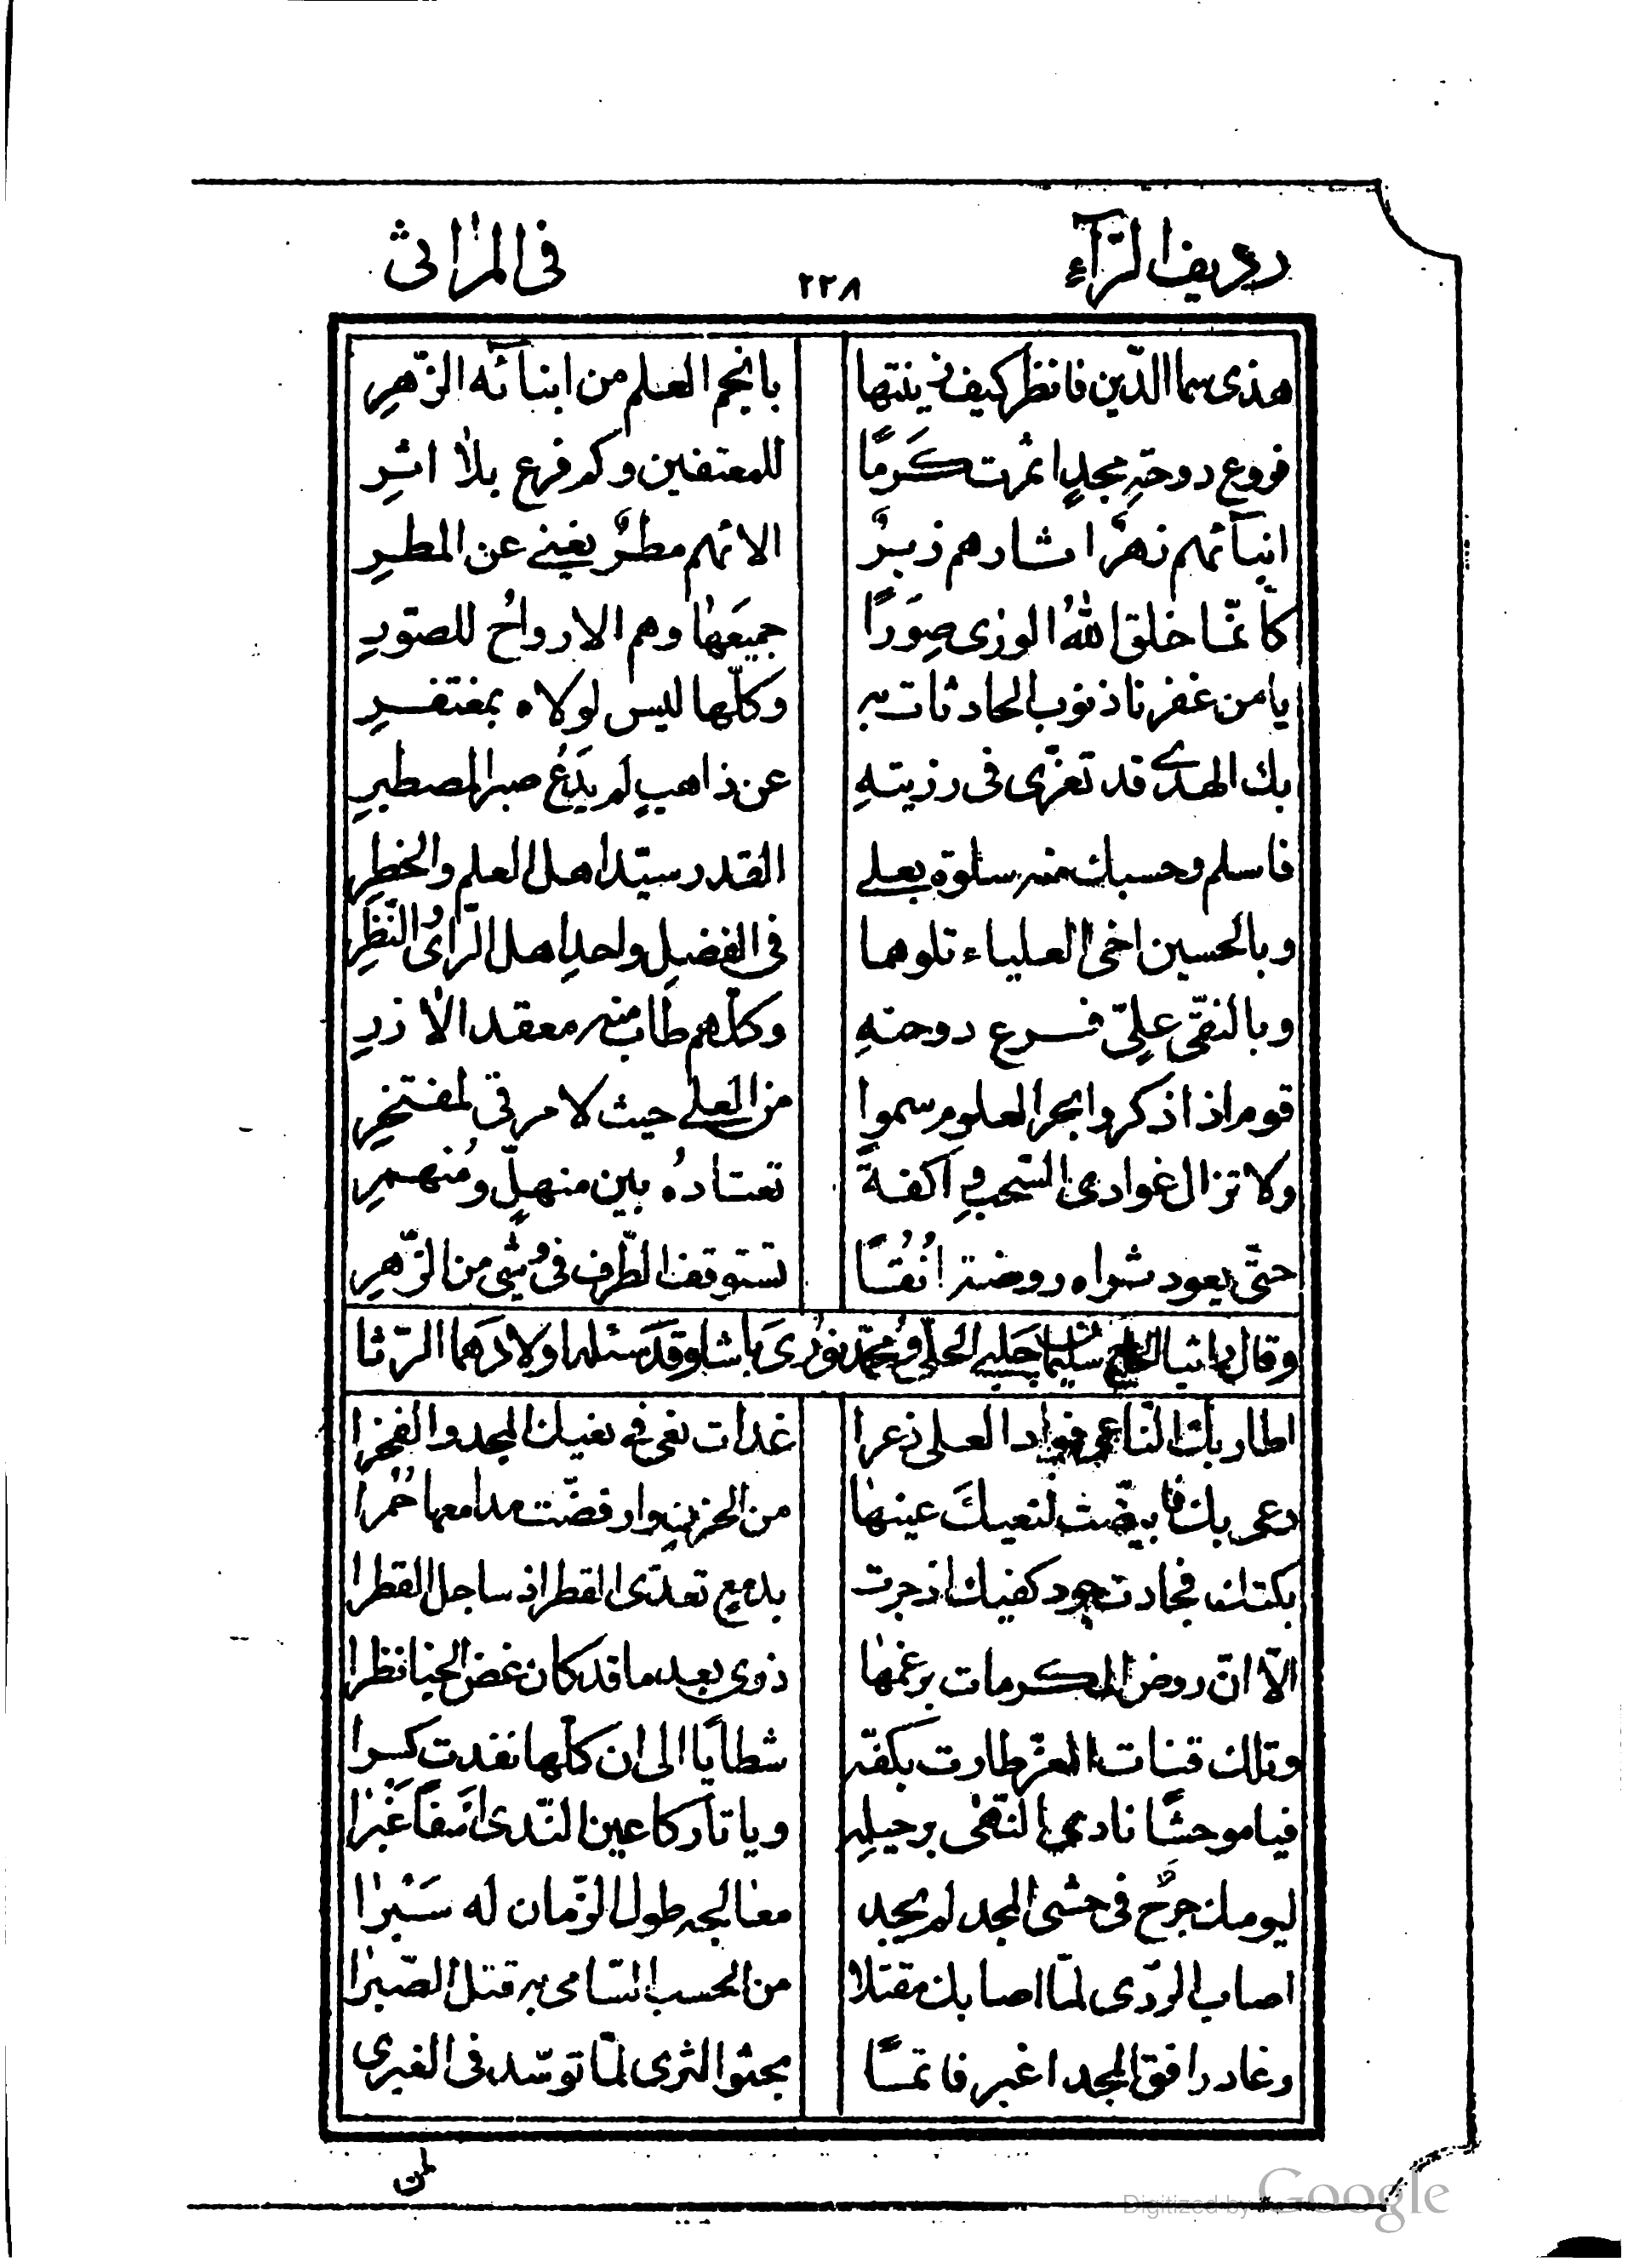 رديف الرّآءِ ٢٢٨ فى المراثى
هذى سما الدّين فانظر كيف زينتها بانجم العلم من ابنآئه الزّهرِ
فروع دوحةِ مجدٍ اثمرت كَرمًا للمعتفين وكم فرع بلا اثرِ
انبآئهم زهرٌ اشارهم زبرٌ الائهم مطرٌ يغنى عن المطرِ
كأنّما خلق اللهُ الورى صِوَرًا جميعَها وهم الارواحُ للصّورِ
يا من غفرنا ذنوب الحادثات به وكلّها ليس لولاه بمغتفرِ
بك الهدى قد تعزّى فى رزيتهِ عن ذاهبٍ لم يدَعْ صبر المصطبرِ
فاسلم وحسبك منه سلوة بعلى القدر سيّد اهل العلم والخطرِ
وبالحسين اخى العلياء تلوهما فى الفضلِ واحدِ اهل الرّاى والنّظرِ
وبالنقّى علىّ فرع دوحتهِ وكلّهم طاب منه معقد الازرِ
قوم اذا ذكروا بحر العلوم سموا من العلى حيث لا مرقى لمفتخرِ
ولا تزال غوادى السّحب وِاكفةً تعتادهُ بين منهلٍّ ومُنهمرِ
حتّى يعود ثراه روضة اُنُفًا تستوقف الطّرف فى وُشْىٍ من الزّهرِ
وقال راثيا الحاج سليمان چلبى الحلّى ومحمّد نورى باشا وقد سئله اولادهما الرّثا
اطار بك النّاعى فؤاد العلى ذعرا غدات نعى فى نعيك المجد والفخرا
دعى بك فابيضّت لنعيكَ عينها من الحزنِ وارفضّت مدامعها حُمْرا
بكتك فجادت جود كفيك اذ جرت بدمعٍ تعدّى القطر اذ ساجل القطرا
الا انّ روض المكرمات برغمها ذوى بعد ما قد كان غض الجنا نظرا
وتلك قنات العزّ طارت بكفّه شظايًا الى ان كلّها نفدت كسرا
فيا موحشًا نادى التّقى برحيلهِ ويا تاركا عين النّدى اسفًا غَبْرا
ليومك جرحٌ فى حشى المجد لم يجد معالجه طول الزّمان له سَبْرا
اصاب الرّدى لمّا اصابك مقتلا من الحسب السّامى به قتل الصّبرا
وغادر افق المجد اغبر قاتمًا بجثو الثرى لمّا توسّد فى الغبرى
لمن
Digitized by Google